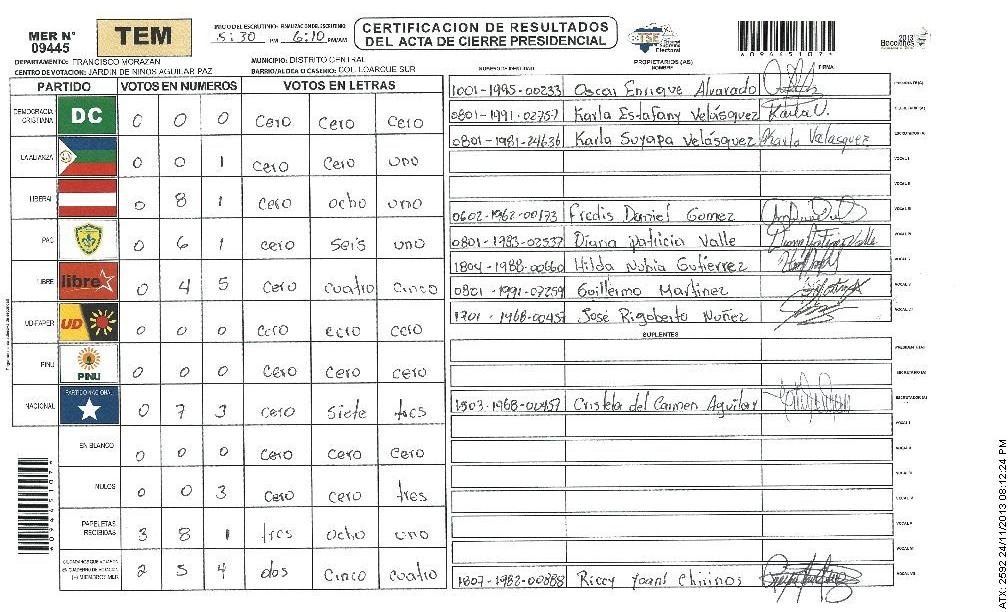 MER N° 09445
TEM
INICIO DEL ESCRUTINIO: FINALIZACION DEL ESCRUTINIO
5:30 PM 6:10 PM/AM
CERTIFICACION DE RESULTADOS
DEL ACTA DE CIERRE PRESIDENCIAL
TSE
Tribunal Supremo Electoral
2013
Elecciones
DEPARTAMENTO: FRANCISCO MORAZAN
MUNICIPIO: DISTRITO CENTRAL
CENTRO DE VOTACION: JARDIN DE NINOS AGUILAR PAZ
BARRIO/ALDEA O CASERIO: COL. LOARQUE SUR
PARTIDO VOTOS EN NUMEROS VOTOS EN LETRAS
DEMOCRACIA CRISTIANA DC 0 0 0 Cero Cero Cero
LA ALIANZA 0 0 1 Cero Cero uno
LIBERAL 0 8 1 Cero ocho uno
PAC 0 6 1 cero seis uno
LIBRE libre 0 4 5 Cero cuatro Cinco
UD-FAPER UD 0 0 0 cero cero cero
PINU PINU 0 0 0 Cero Cero cero
NACIONAL PARTIDO NACIONAL 0 7 3 cero Siete tres
EN BLANCO 0 0 0 Cero Cero Cero
NULOS 0 0 3 Cero Cero tres
PAPELETAS RECIBIDAS 3 8 1 tres ocho uno
2 5 4 dos Cinco cuatro
NUMERO DE IDENTIDAD PROPIETARIOS (AS) NOMBRE FIRMA
1001-1985-00233 Oscar Enrique Alvarado PRESIDENTE(A)
0801-1991-02757 Karla Estafany Velásquez Karla V. SECRETARIO(A)
0801-1981-24636 Karla Suyapa Velásquez Karla Velasquez ESCRUTADOR(A)
VOCAL I
VOCAL II
0602-1962-00173 Fredis Daniel Gomez VOCAL III
0801-1983-02537 Diana Patricia Valle VOCAL IV
1804-1988-00660 Hilda Nubia Gutierrez VOCAL V
0801-1991-07259 Guillermo Martinez
1701-1968-00457 José Rigoberto Nuñez
SUPLENTES
PRESIDENTE(A)
SECRETARIO(A)
1503-1968-00457 Cristela del Carmen Aguilar ESCRUTADOR(A)
VOCAL I
VOCAL II
VOCAL III
VOCAL IV
VOCAL V
VOCAL VI
1807-1982-00888 Riccy Yoani Chirinos VOCAL VII
ATX: 2592 24/11/2013 08:12:24 PM